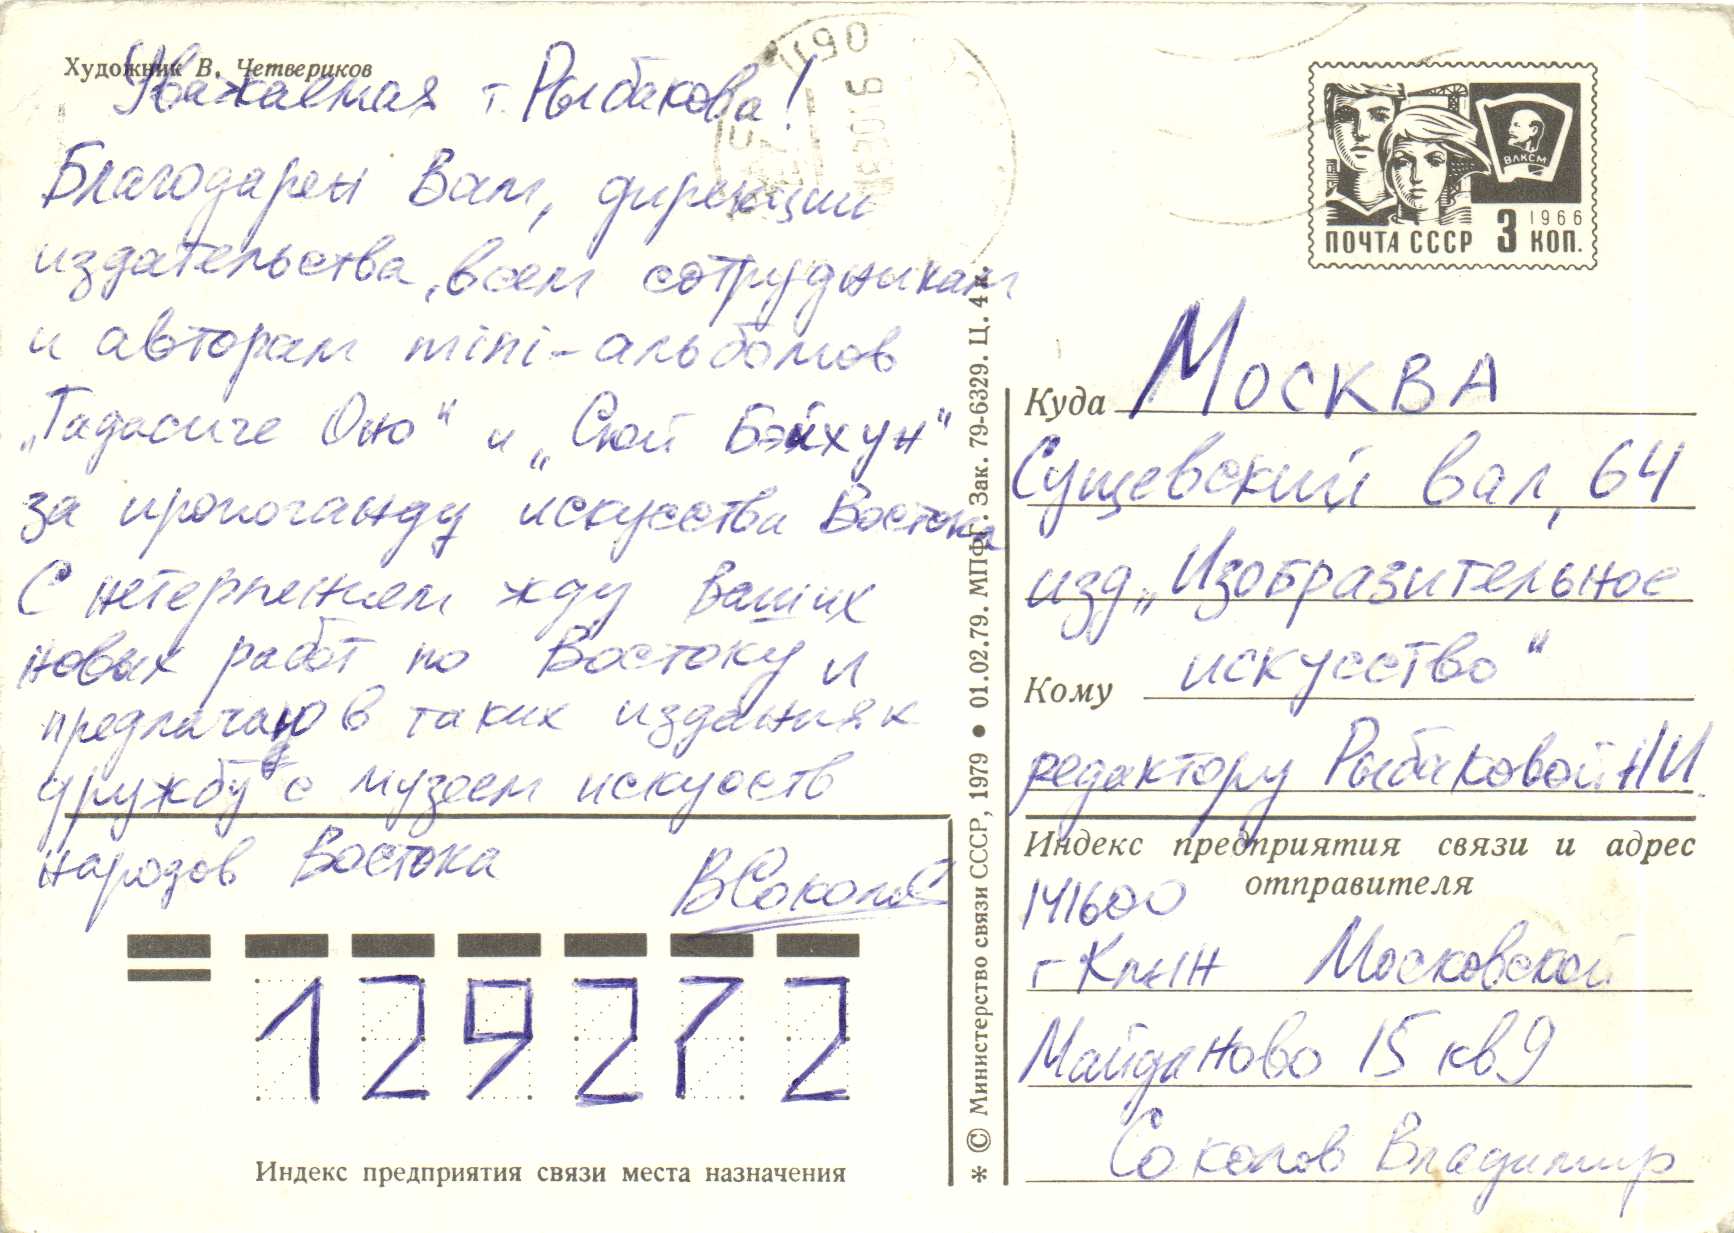 Художник В. Четвериков
Уважаемая т. Рыбакова!
Благодарен Вам, дирекции
издательства, всем сотрудникам
и авторам mini-альбомов
„Тадасиге Оно" и „Сюй Бэйхун"
за пропоганду искусства Востока
С нетерпением жду Ваших
новых работ по Востоку и
предлагаю в таких изданиях
дружбу с музеем искусств
народов Востока
ВСоколов
129272
Индекс предприятия связи места назначения
* © Министерство связи СССР, 1979 ● 01.02.79. МПФГ. Зак. 79-6329. Ц. 4 к.
ВЛКСМ
1966
ПОЧТА СССР 3 КОП.
Куда Москва
Сущевский вал, 64
изд „Изобразительное
искусство"
Кому
редактору Рыбаковой НИ
Индекс предприятия связи и адрес
отправителя
141600
г Клин Московской
Майданово 15 кв 9
Соколов Владимир